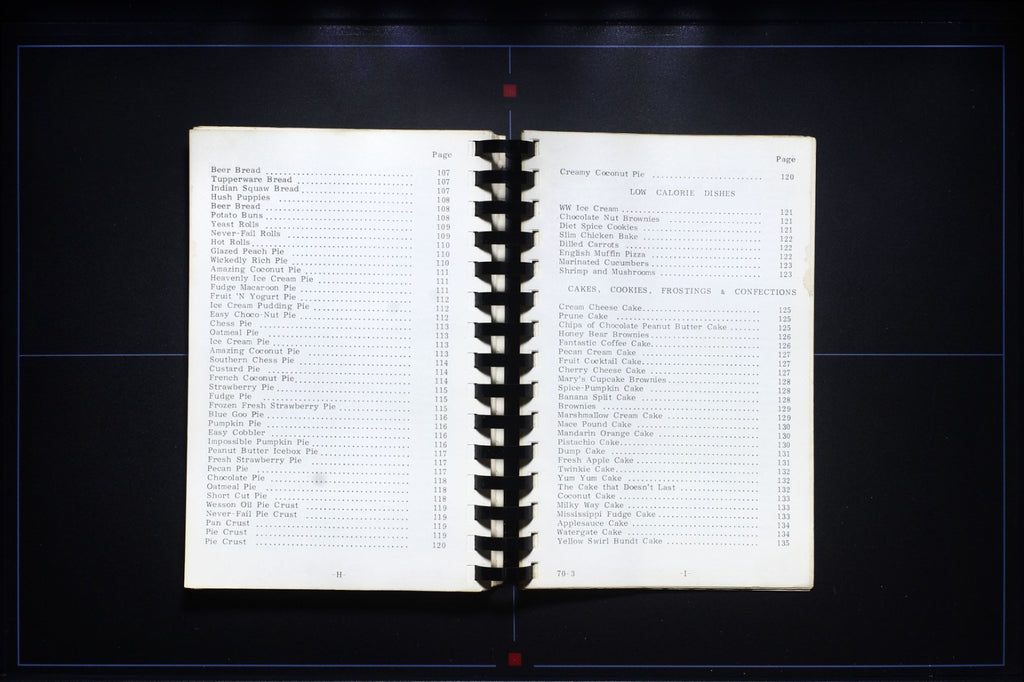 Page
Beer Bread 107
Tupperware Bread 107
Indian Squaw Bread 107
Hush Puppies 108
Beer Bread 108
Potato Buns 108
Yeast Rolls 109
Never-Fail Rolls 109
Hot Rolls 110
Glazed Peach Pie 110
Wickedly Rich Pie 110
Amazing Coconut Pie 111
Heavenly Ice Cream Pie 111
Fudge Macaroon Pie 111
Fruit 'N Yogurt Pie 112
Ice Cream Pudding Pie 112
Easy Choco-Nut Pie 112
Chess Pie 113
Oatmeal Pie 113
Ice Cream Pie 113
Amazing Coconut Pie 113
Southern Chess Pie 114
Custard Pie 114
French Coconut Pie 114
Strawberry Pie 115
Fudge Pie 115
Frozen Fresh Strawberry Pie 115
Blue Goo Pie 116
Pumpkin Pie 116
Easy Cobbler 116
Impossible Pumpkin Pie 116
Peanut Butter Icebox Pie 117
Fresh Strawberry Pie 117
Pecan Pie 117
Chocolate Pie 118
Oatmeal Pie 118
Short Cut Pie 118
Wesson Oil Pie Crust 119
Never-Fail Pie Crust 119
Pan Crust 119
Pie Crust 119
Pie Crust 120
-H-
Page
Creamy Coconut Pie 120
LOW CALORIE DISHES
WW Ice Cream 121
Chocolate Nut Brownies 121
Diet Spice Cookies 121
Slim Chicken Bake 122
Dilled Carrots 122
English Muffin Pizza 122
Marinated Cucumbers 123
Shrimp and Mushrooms 123
CAKES, COOKIES, FROSTINGS & CONFECTIONS
Cream Cheese Cake 125
Prune Cake 125
Chips of Chocolate Peanut Butter Cake 125
Honey Bear Brownies 126
Fantastic Coffee Cake 126
Pecan Cream Cake 127
Fruit Cocktail Cake 127
Cherry Cheese Cake 127
Mary's Cupcake Brownies 128
Spice-Pumpkin Cake 128
Banana Split Cake 128
Brownies 129
Marshmallow Cream Cake 129
Mace Pound Cake 130
Mandarin Orange Cake 130
Pistachio Cake 130
Dump Cake 131
Fresh Apple Cake 131
Twinkie Cake 132
Yum Yum Cake 132
The Cake that Doesn't Last 132
Coconut Cake 133
Milky Way Cake 133
Mississippi Fudge Cake 133
Applesauce Cake 134
Watergate Cake 134
Yellow Swirl Bundt Cake 135
70-3 -I-